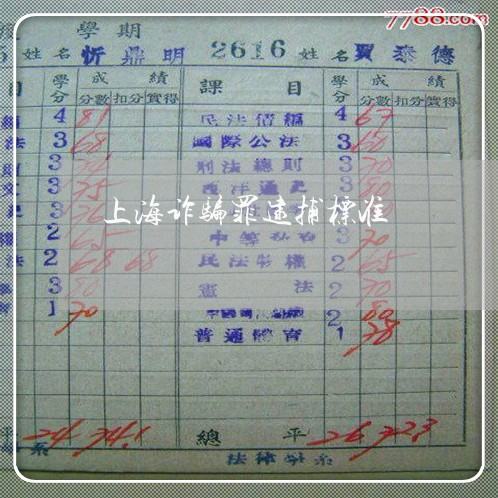 7788.com
學期
5 姓名 忻鼎明 2616 姓名 賈泰德
目 學分 成績 課目 學分 成績
分數 扣分 實得 分數 扣分 實得
4 81 民法債編 4 67
法 3 68 國際公法 3 60
3 刑法總則 3 70
3 75 西洋通史 3 80
3 3
2 65 3 70
法 2 68 68 民法物權 2 65
3 80 憲法 2 70
1 70 2 80
普通體育 1 78
上海诈骗罪逮捕標准
平 24 74.1 總平 26 72.3
系 法律學系